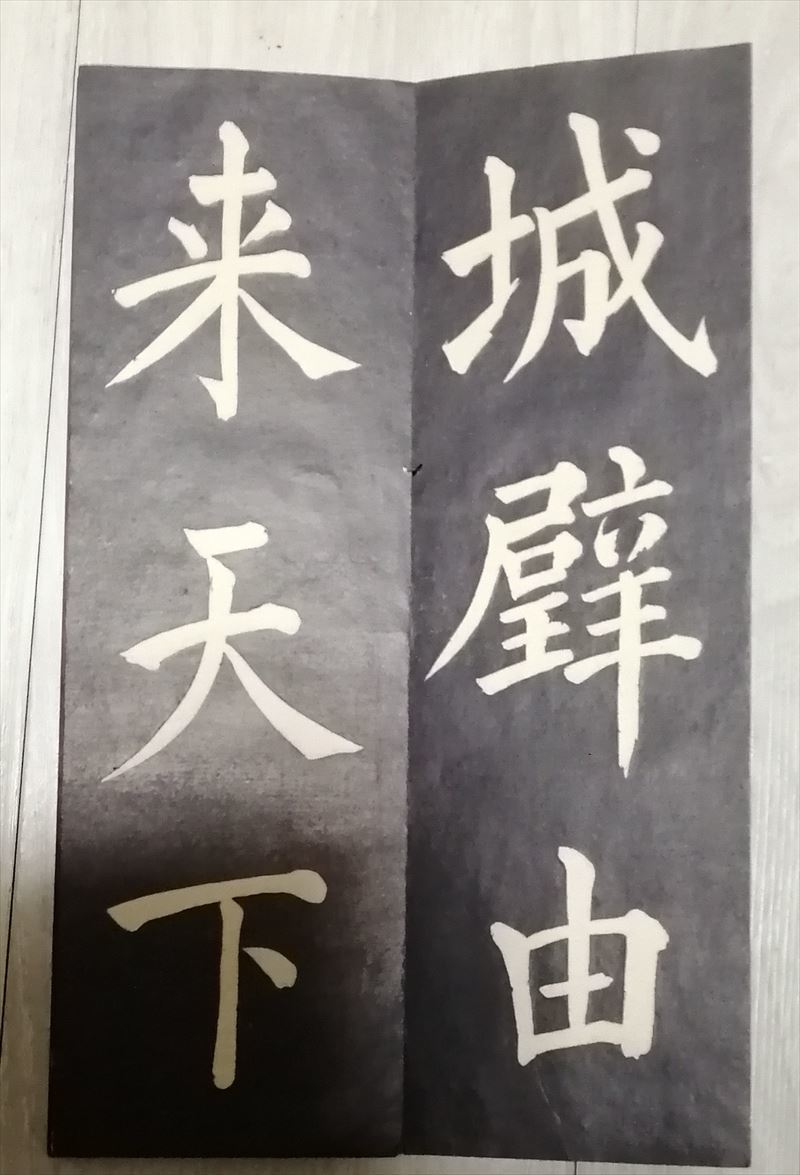 城璧由
来天下